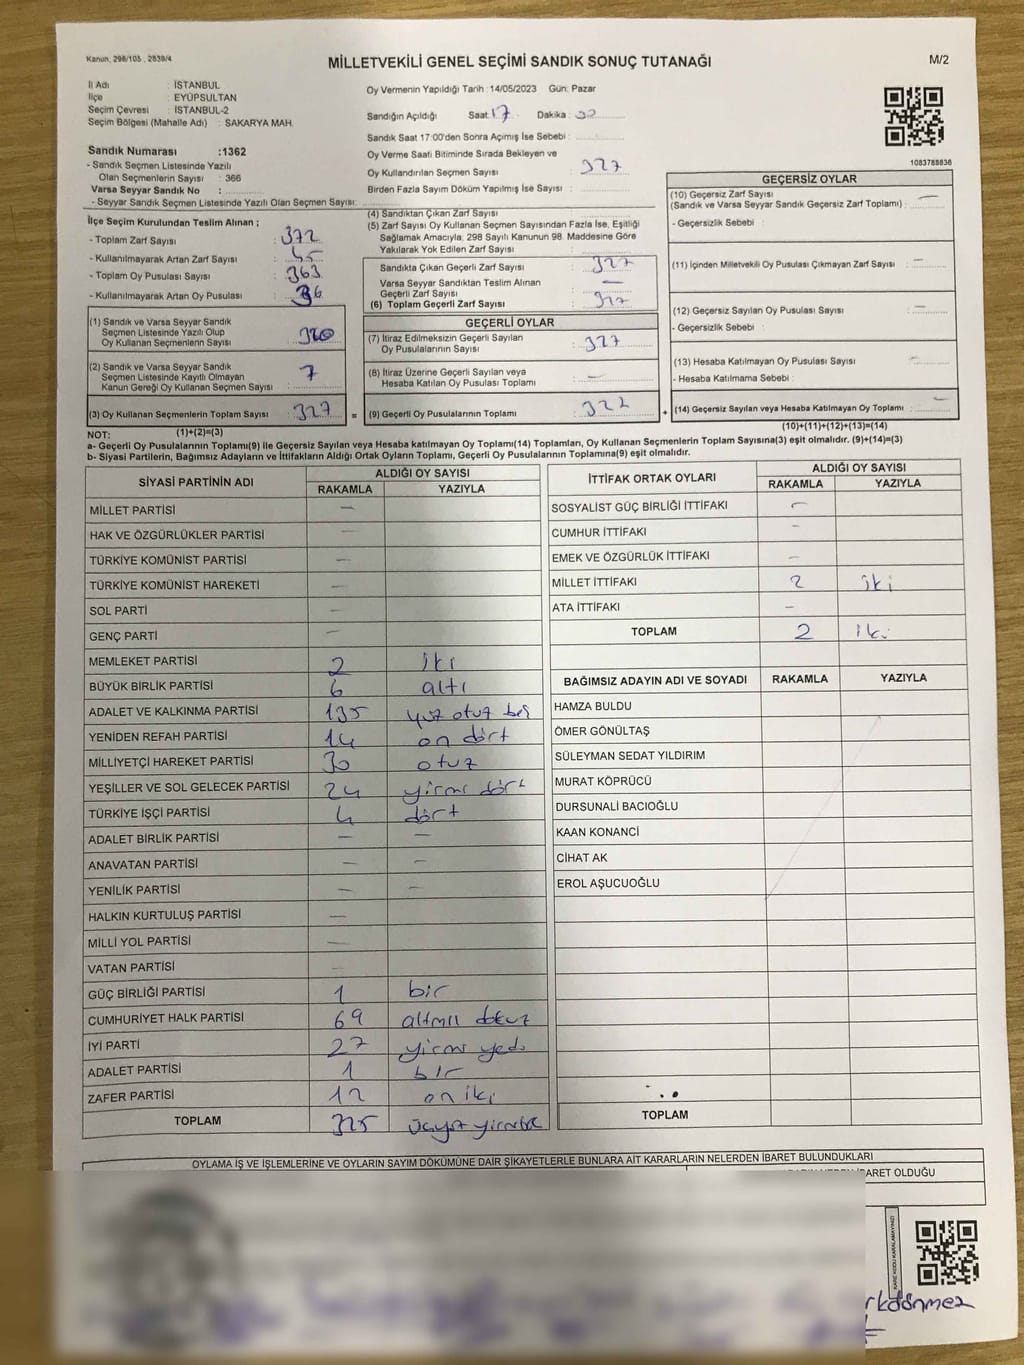 Kanun, 298/105 , 2839/4
MİLLETVEKİLİ GENEL SEÇİMİ SANDIK SONUÇ TUTANAĞI
M/2
İl Adı : İSTANBUL
İlçe : EYÜPSULTAN
Seçim Çevresi : İSTANBUL-2
Seçim Bölgesi (Mahalle Adı) : SAKARYA MAH.
Sandık Numarası :1362
- Sandık Seçmen Listesinde Yazılı
Olan Seçmenlerin Sayısı : 366
Varsa Seyyar Sandık No :
- Seyyar Sandık Seçmen Listesinde Yazılı Olan Seçmen Sayısı:
Oy Vermenin Yapıldığı Tarih :14/05/2023 Gün: Pazar
Sandığın Açıldığı Saat: 17 Dakika :
Sandık Saat 17:00'den Sonra Açımış İse Sebebi :
Oy Verme Saati Bitiminde Sırada Bekleyen ve
Oy Kullandırılan Seçmen Sayısı : 327
Birden Fazla Sayım Döküm Yapılmış İse Sayısı :
1083788836
İlçe Seçim Kurulundan Teslim Alınan ;
- Toplam Zarf Sayısı : 372
- Kullanılmayarak Artan Zarf Sayısı : 45
- Toplam Oy Pusulası Sayısı : 363
- Kullanılmayarak Artan Oy Pusulası : 36
(1) Sandık ve Varsa Seyyar Sandık
Seçmen Listesinde Yazılı Olup
Oy Kullanan Seçmenlerin Sayısı : 320
(2) Sandık ve Varsa Seyyar Sandık
Seçmen Listesinde Kayıtlı Olmayan
Kanun Gereği Oy Kullanan Seçmen Sayısı : 7
(3) Oy Kullanan Seçmenlerin Toplam Sayısı : 327 =
(1)+(2)=(3)
(4) Sandıktan Çıkan Zarf Sayısı :
(5) Zarf Sayısı Oy Kullanan Seçmen Sayısından Fazla İse, Eşitliği
Sağlamak Amacıyla, 298 Sayılı Kanunun 98. Maddesine Göre
Yakılarak Yok Edilen Zarf Sayısı :
Sandıkta Çıkan Geçerli Zarf Sayısı : 327
Varsa Seyyar Sandıktan Teslim Alınan
Geçerli Zarf Sayısı : —
(6) Toplam Geçerli Zarf Sayısı : 327
GEÇERLİ OYLAR
(7) İtiraz Edilmeksizin Geçerli Sayılan
Oy Pusulalarının Sayısı : 327
(8) İtiraz Üzerine Geçerli Sayılan veya
Hesaba Katılan Oy Pusulası Toplamı : —
(9) Geçerli Oy Pusulalarının Toplamı : 327 +
GEÇERSİZ OYLAR
(10) Geçersiz Zarf Sayısı
(Sandık ve Varsa Seyyar Sandık Geçersiz Zarf Toplamı) : —
- Geçersizlik Sebebi :
(11) İçinden Milletvekili Oy Pusulası Çıkmayan Zarf Sayısı : —
(12) Geçersiz Sayılan Oy Pusulası Sayısı : —
- Geçersizlik Sebebi :
(13) Hesaba Katılmayan Oy Pusulası Sayısı : —
- Hesaba Katılmama Sebebi :
(14) Geçersiz Sayılan veya Hesaba Katılmayan Oy Toplamı : —
(10)+(11)+(12)+(13)=(14)
NOT:
a- Geçerli Oy Pusulalarının Toplamı(9) ile Geçersiz Sayılan veya Hesaba katılmayan Oy Toplamı(14) Toplamları, Oy Kullanan Seçmenlerin Toplam Sayısına(3) eşit olmalıdır. (9)+(14)=(3)
b- Siyasi Partilerin, Bağımsız Adayların ve İttifakların Aldığı Ortak Oyların Toplamı, Geçerli Oy Pusulalarının Toplamına(9) eşit olmalıdır.
SİYASİ PARTİNİN ADI ALDIĞI OY SAYISI
RAKAMLA YAZIYLA
MİLLET PARTİSİ —
HAK VE ÖZGÜRLÜKLER PARTİSİ —
TÜRKİYE KOMÜNİST PARTİSİ —
TÜRKİYE KOMÜNİST HAREKETİ —
SOL PARTİ —
GENÇ PARTİ —
MEMLEKET PARTİSİ 2 iki
BÜYÜK BİRLİK PARTİSİ 6 altı
ADALET VE KALKINMA PARTİSİ 135 yüz otuz beş
YENİDEN REFAH PARTİSİ 14 on dört
MİLLİYETÇİ HAREKET PARTİSİ 30 otuz
YEŞİLLER VE SOL GELECEK PARTİSİ 24 yirmi dört
TÜRKİYE İŞÇİ PARTİSİ 4 dört
ADALET BİRLİK PARTİSİ — —
ANAVATAN PARTİSİ — —
YENİLİK PARTİSİ — —
HALKIN KURTULUŞ PARTİSİ —
MİLLİ YOL PARTİSİ —
VATAN PARTİSİ —
GÜÇ BİRLİĞİ PARTİSİ 1 bir
CUMHURİYET HALK PARTİSİ 69 altmış dokuz
İYİ PARTİ 27 yirmi yedi
ADALET PARTİSİ 1 bir
ZAFER PARTİSİ 12 on iki
TOPLAM 325 üçyüz yirmibeş
İTTİFAK ORTAK OYLARI ALDIĞI OY SAYISI
RAKAMLA YAZIYLA
SOSYALİST GÜÇ BİRLİĞİ İTTİFAKI —
CUMHUR İTTİFAKI —
EMEK VE ÖZGÜRLÜK İTTİFAKI —
MİLLET İTTİFAKI 2 iki
ATA İTTİFAKI —
TOPLAM 2 iki
BAĞIMSIZ ADAYIN ADI VE SOYADI RAKAMLA YAZIYLA
HAMZA BULDU
ÖMER GÖNÜLTAŞ
SÜLEYMAN SEDAT YILDIRIM
MURAT KÖPRÜCÜ
DURSUNALİ BACIOĞLU
KAAN KONANCİ
CİHAT AK
EROL AŞUCUOĞLU
TOPLAM
OYLAMA İŞ VE İŞLEMLERİNE VE OYLARIN SAYIM DÖKÜMÜNE DAİR ŞİKAYETLERLE BUNLARA AİT KARARLARIN NELERDEN İBARET BULUNDUKLARI
BARET OLDUĞU
KARE KODU KARALAMAYINIZ!